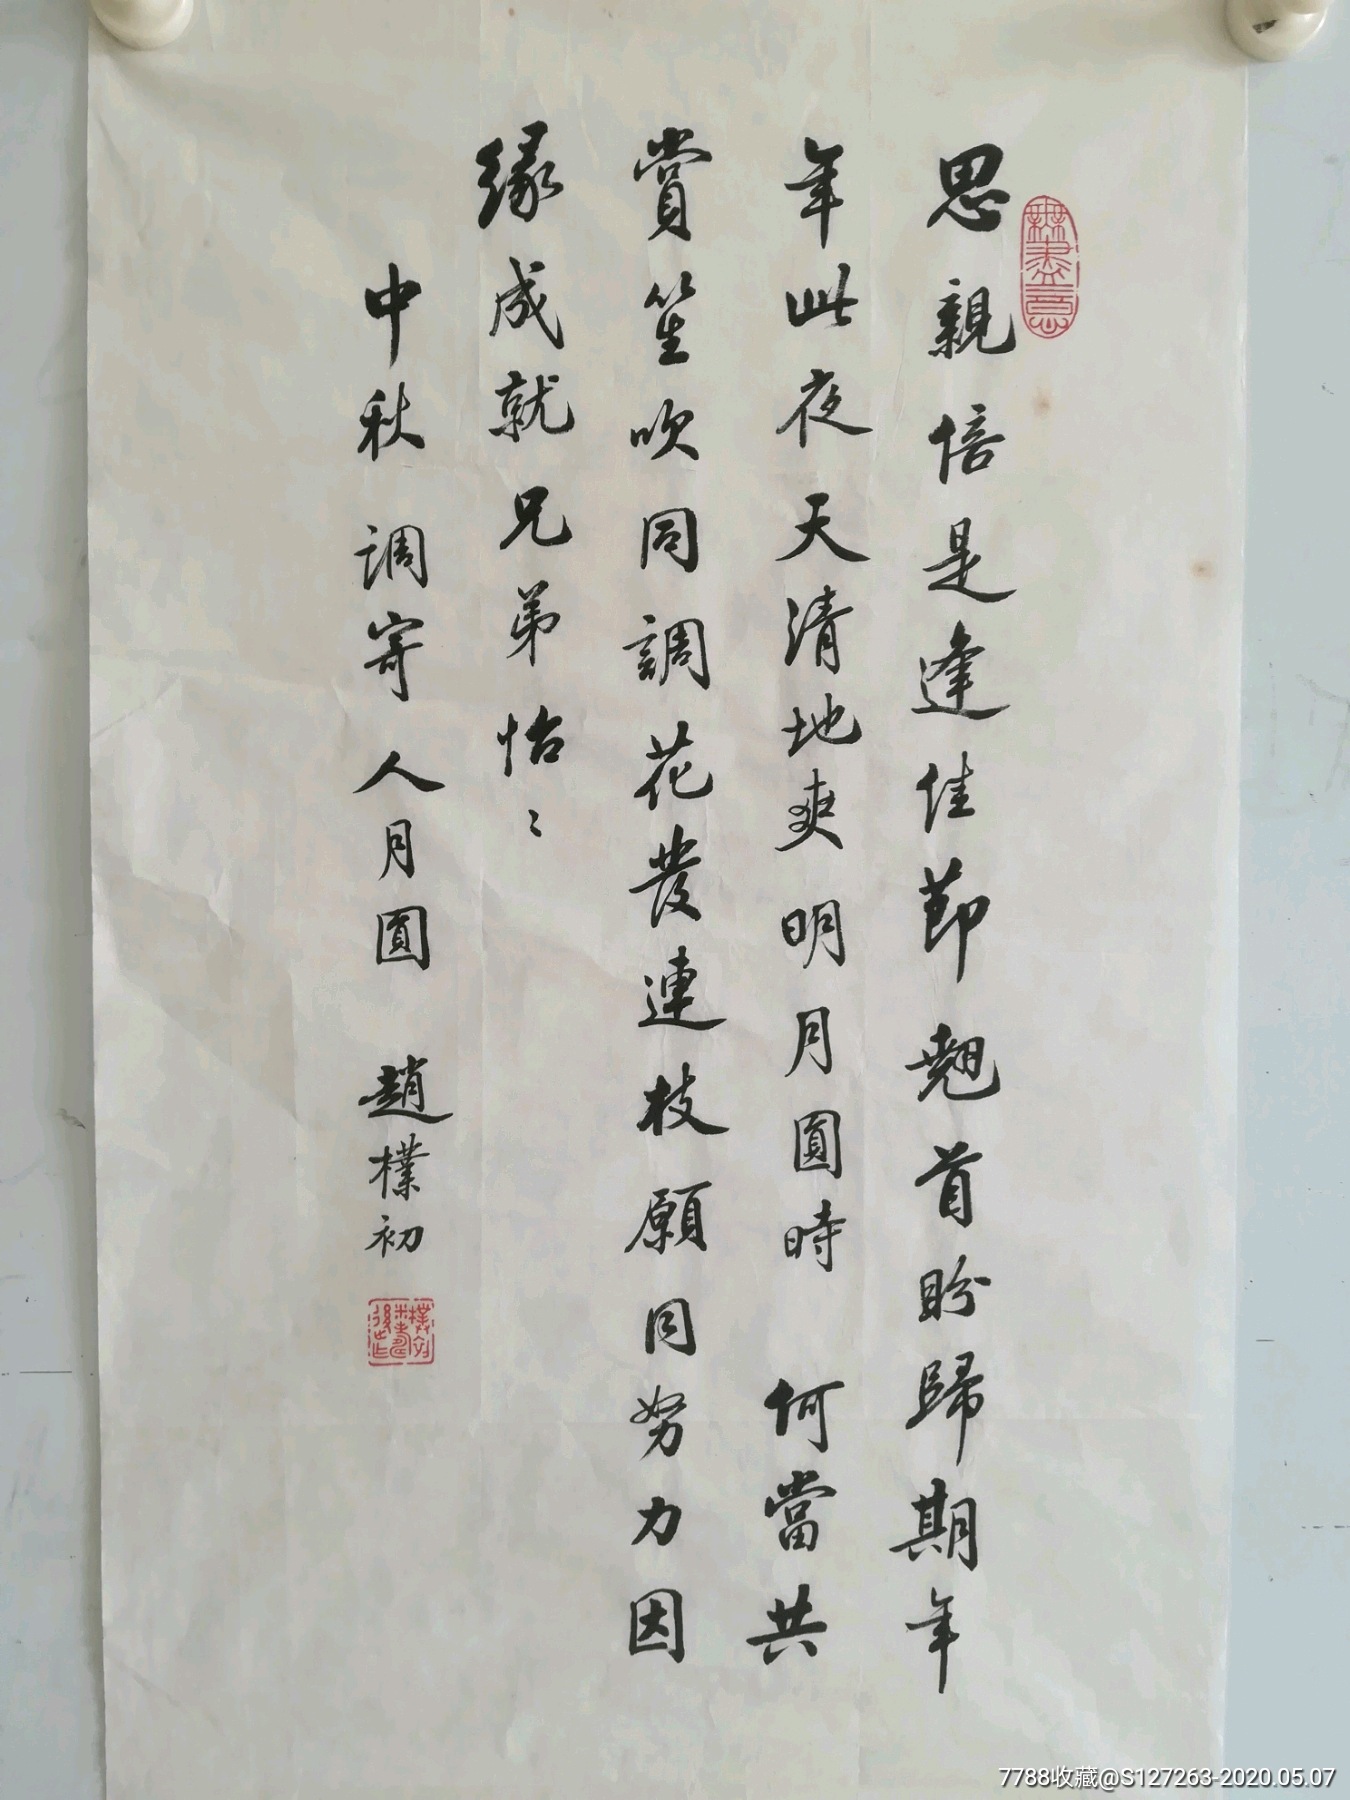 思親倍是逢佳節翹首盼歸期年
年此夜天清地爽明月圓時 何當共
賞笙吹同調花發連枝願同努力因
緣成就兄弟怡〻
中秋調寄人月圓 趙樸初
無盡意
7788收藏@S127263-2020.05.07